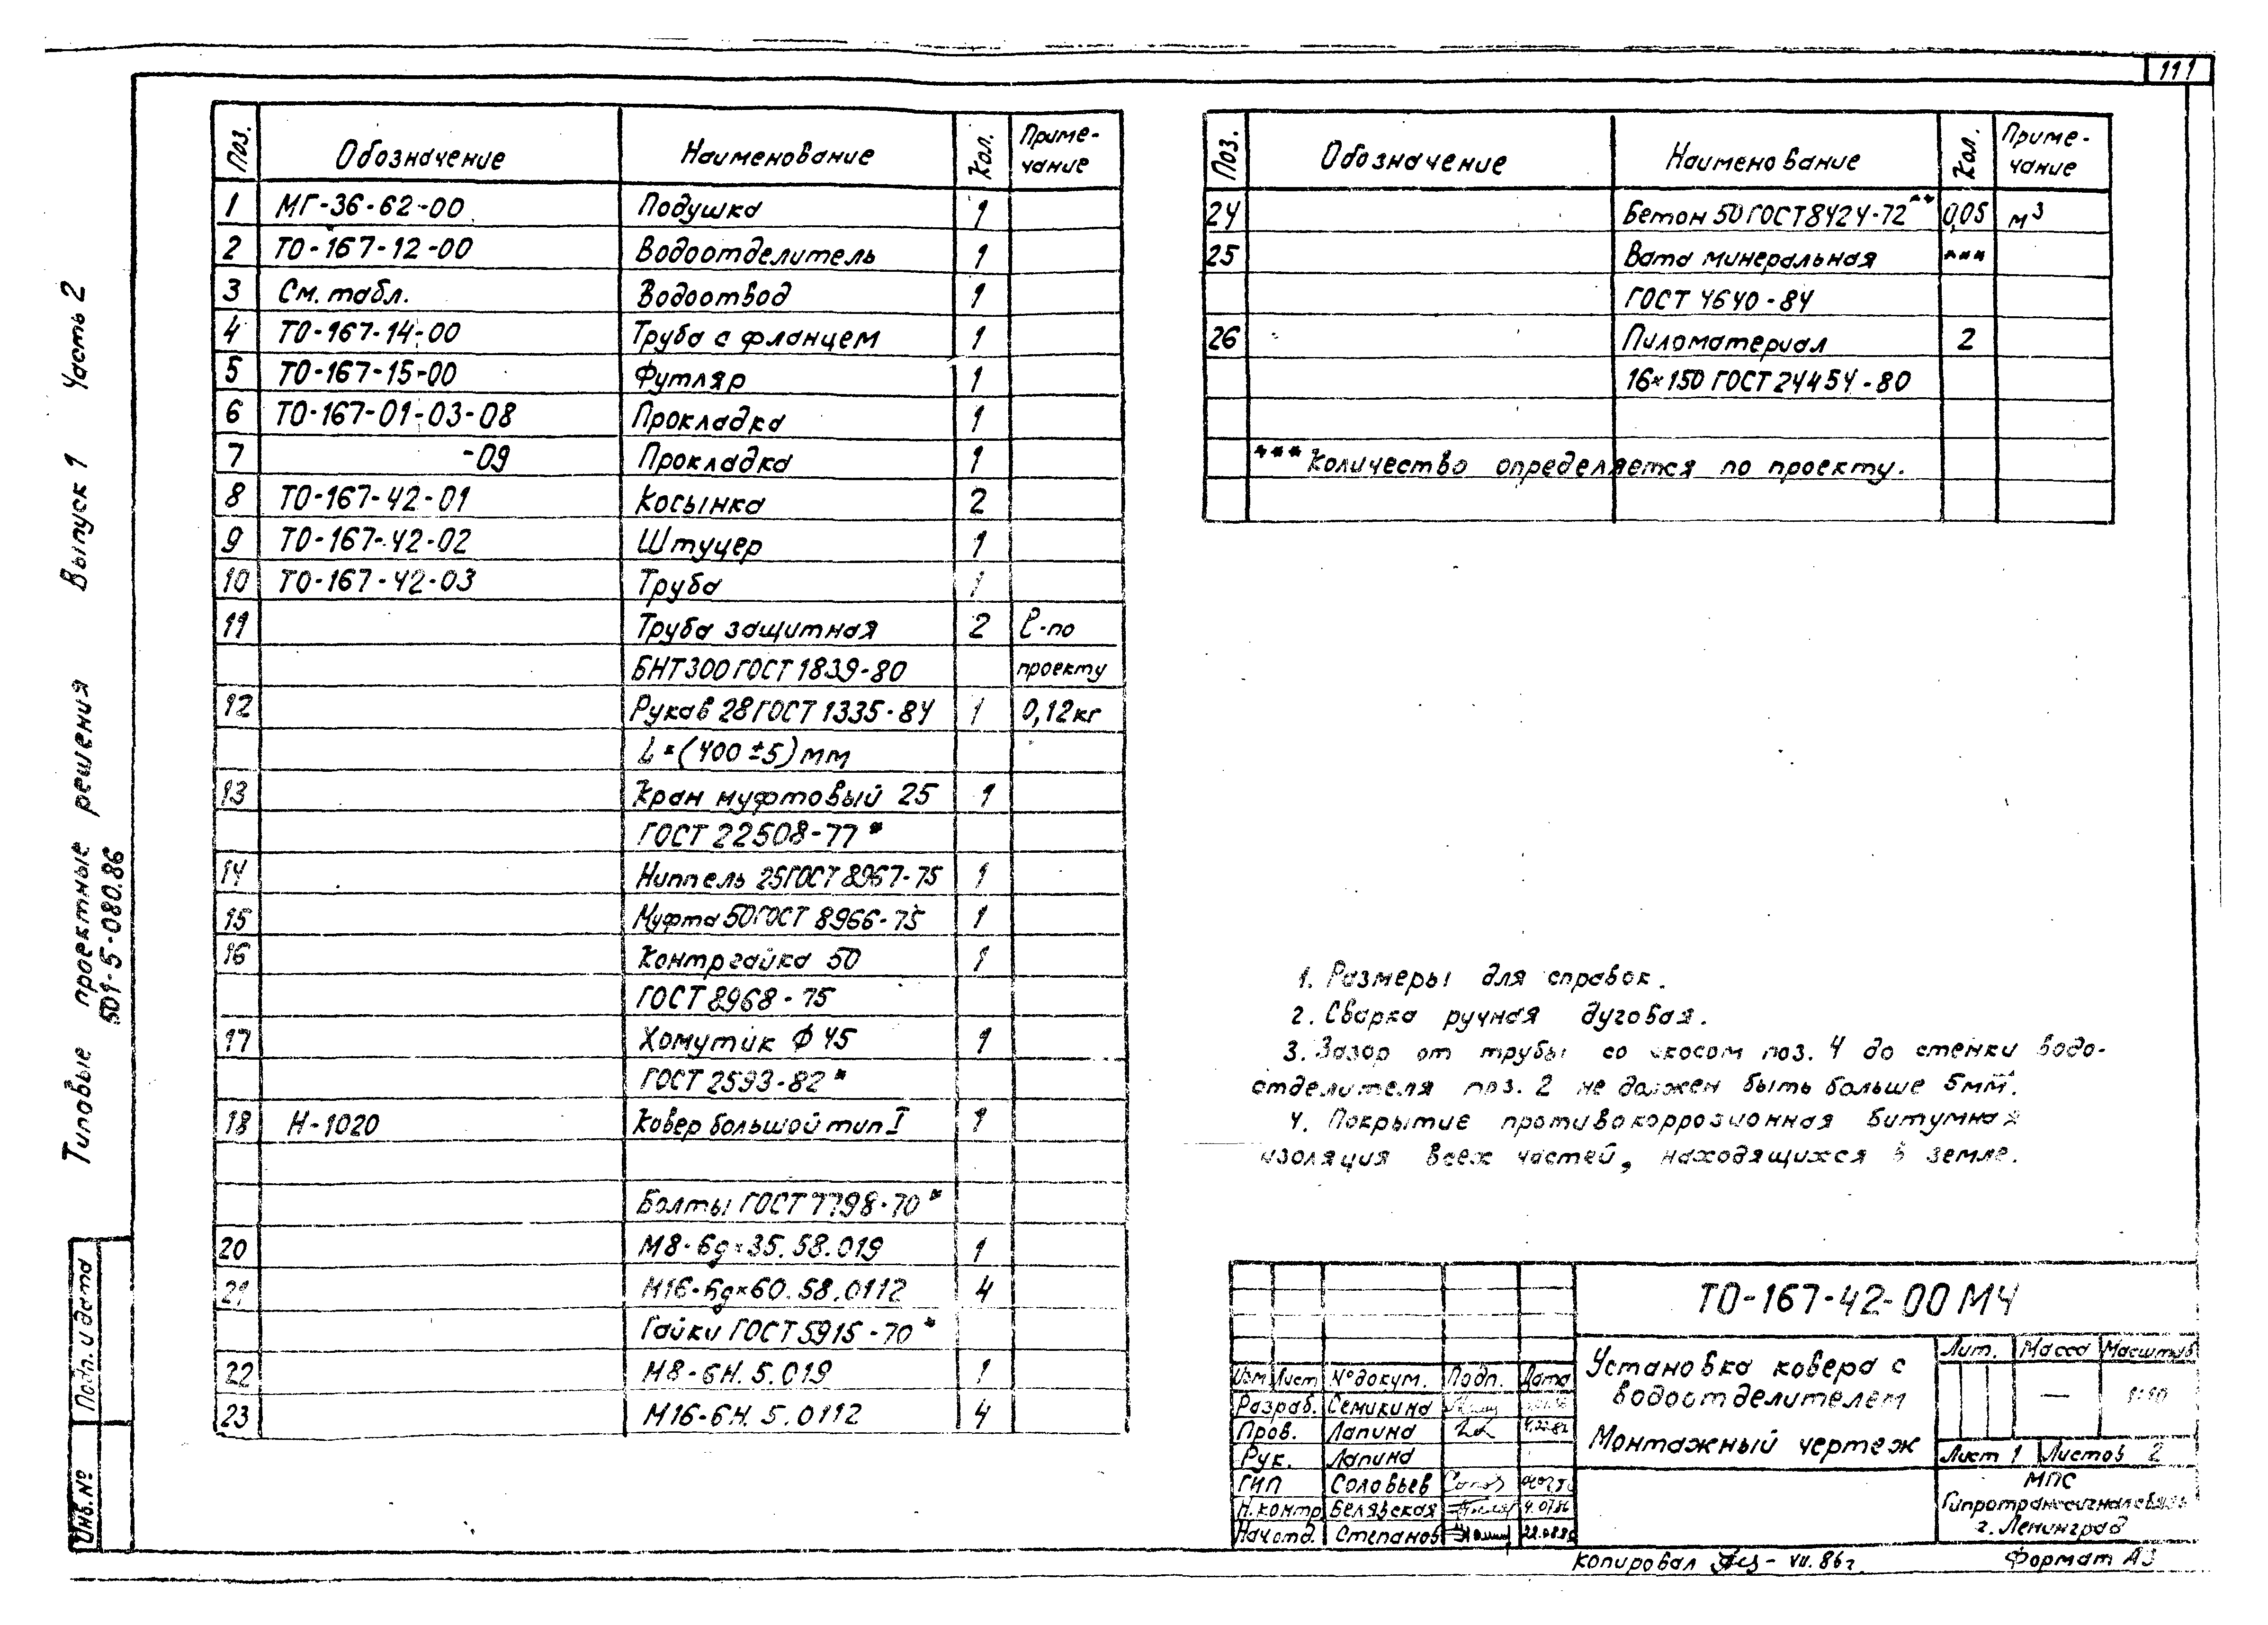 111
Типовые проектные решения Выпуск 1 Часть 2
501-5-080.86
Поз. Обозначение Наименование Кол. Приме-
чание
1 МГ-36-62-00 Подушка 1
2 ТО-167-12-00 Водоотделитель 1
3 См. табл. Водоотвод 1
4 ТО-167-14-00 Труба с фланцем 1
5 ТО-167-15-00 Футляр 1
6 ТО-167-01-03-08 Прокладка 1
7 -09 Прокладка 1
8 ТО-167-42-01 Косынка 2
9 ТО-167-42-02 Штуцер 1
10 ТО-167-42-03 Труба 1
11 Труба защитная 2 ℓ-по
БНТ300 ГОСТ 1839-80 проекту
12 Рукав 28 ГОСТ 1335-84 1 0,12кг
L=(400±5)мм
13 Кран муфтовый 25 1
ГОСТ 22508-77*
14 Ниппель 25 ГОСТ 8967-75 1
15 Муфта 50 ГОСТ 8966-75 1
16 Контргайка 50 1
ГОСТ 8968-75
17 Хомутик Ф 45 1
ГОСТ 2593-82*
18 Н-1020 Ковер большой тип I 1
Болты ГОСТ 7798-70*
20 М8-6g×35.58.019 1
21 М16-6g×60.58.0112 4
Гайки ГОСТ 5915-70*
22 М8-6Н.5.019 1
23 М16-6Н.5.0112 4
Поз. Обозначение Наименование Кол. Приме-
чание
24 Бетон 50 ГОСТ 8424-72** 0,05 м³
25 Вата минеральная ***
ГОСТ 4640-84
26 Пиломатериал 2
16×150 ГОСТ 24454-80
*** Количество определяется по проекту.
1. Размеры для справок.
2. Сварка ручная дуговая.
3. Зазор от трубы со скосом поз. 4 до стенки водо-
отделителя поз. 2 не должен быть больше 5мм.
4. Покрытие противокоррозионная битумная
изоляция всех частей, находящихся в земле.
ТО-167-42-00 МЧ
Установка ковера с
водоотделителем
Монтажный чертеж
Лит. Масса Масштаб
— 1:10
Лист 1 Листов 2
МПС
Гипротранссигналсвязь
г. Ленинград
Изм Лист № докум. Подп. Дата
Разраб. Семикина
Пров. Лапина
Рук. Лапина
ГИП Соловьев
Н.контр Белявская
Нач.отд. Степанов
Копировал VII.86г.
Формат А3
Подп. и дата
Инв.№